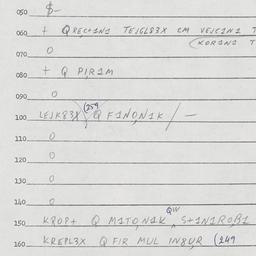 050 $-
060 + QREC+1N1 TEJGL83X CM VEJC1N1 T
(KOR1N1 T
070 O
080 + Q PIR1M
090 O
100 LEJK83X (259 Q F1NO,N1K / —
110 O
120 O
130 O
140 O
150 KROP+ Q M1TO,N1K QW S+1N1ROB1
160 KREPL3X Q FIR MUL IN8UR (249